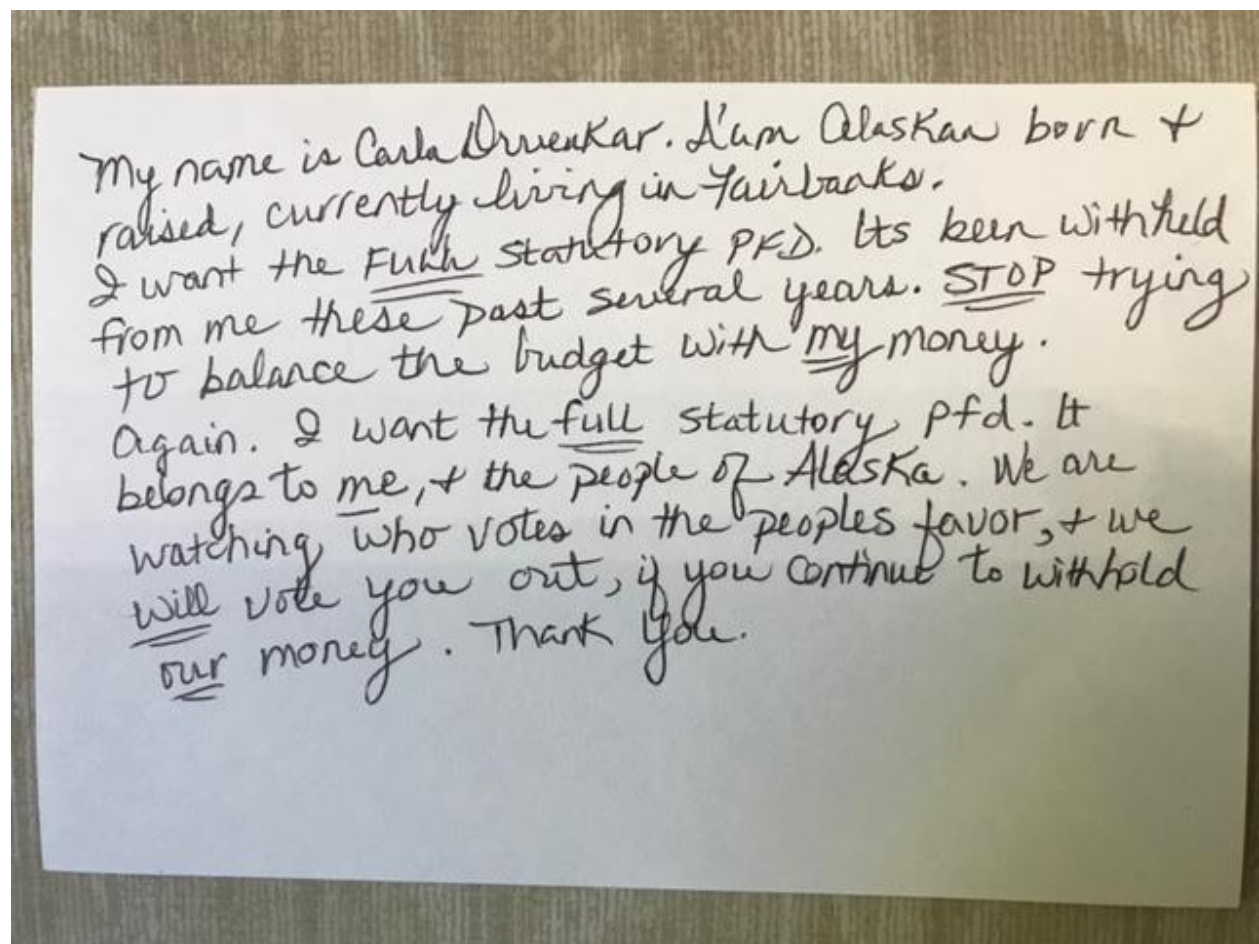 My name is Carla Drvenkar. I'am Alaskan born +
raised, currently living in Fairbanks.
I want the FULL Statutory PFD. Its been withheld
from me these past several years. STOP trying
to balance the budget with my money.
Again. I want the full statutory pfd. It
belongs to me, + the people of Alaska. We are
watching who votes in the peoples favor, + we
will vote you out, if you continue to withhold
our money. Thank you.